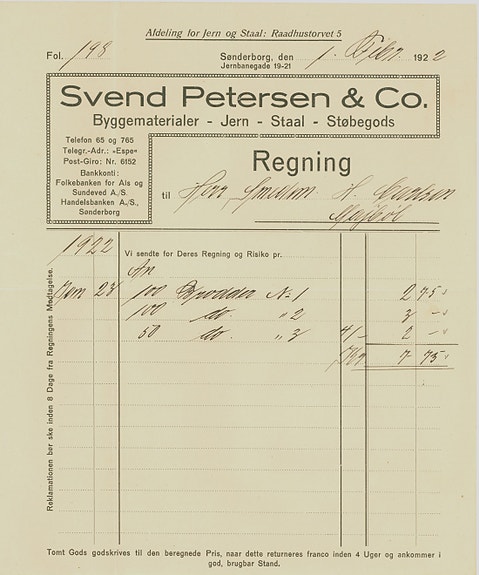 Afdeling for Jern og Staal: Raadhustorvet 5
Fol. 198
Sønderborg, den 1. Febr. 1922
Jernbanegade 19-21
Svend Petersen & Co.
Byggematerialer - Jern - Staal - Støbegods
Telefon 65 og 765
Telegr.-Adr.: »Espe«
Post-Giro: Nr. 6152
Bankkonti:
Folkebanken for Als og
Sundeved A./S.
Handelsbanken A./S.,
Sønderborg
Regning
til Herr Smedem. H.
1922
Vi sendte for Deres Regning og Risiko pr.
An
100 Brodder No 1 2 75
100 do. " 2 3 -
50 do. " 3 4/- 2 -
Kr. 7 75
Reklamationer bør ske inden 8 Dage fra Regningens Modtagelse.
Tomt Gods godskrives til den beregnede Pris, naar dette returneres franco inden 4 Uger og ankommer i
god, brugbar Stand.